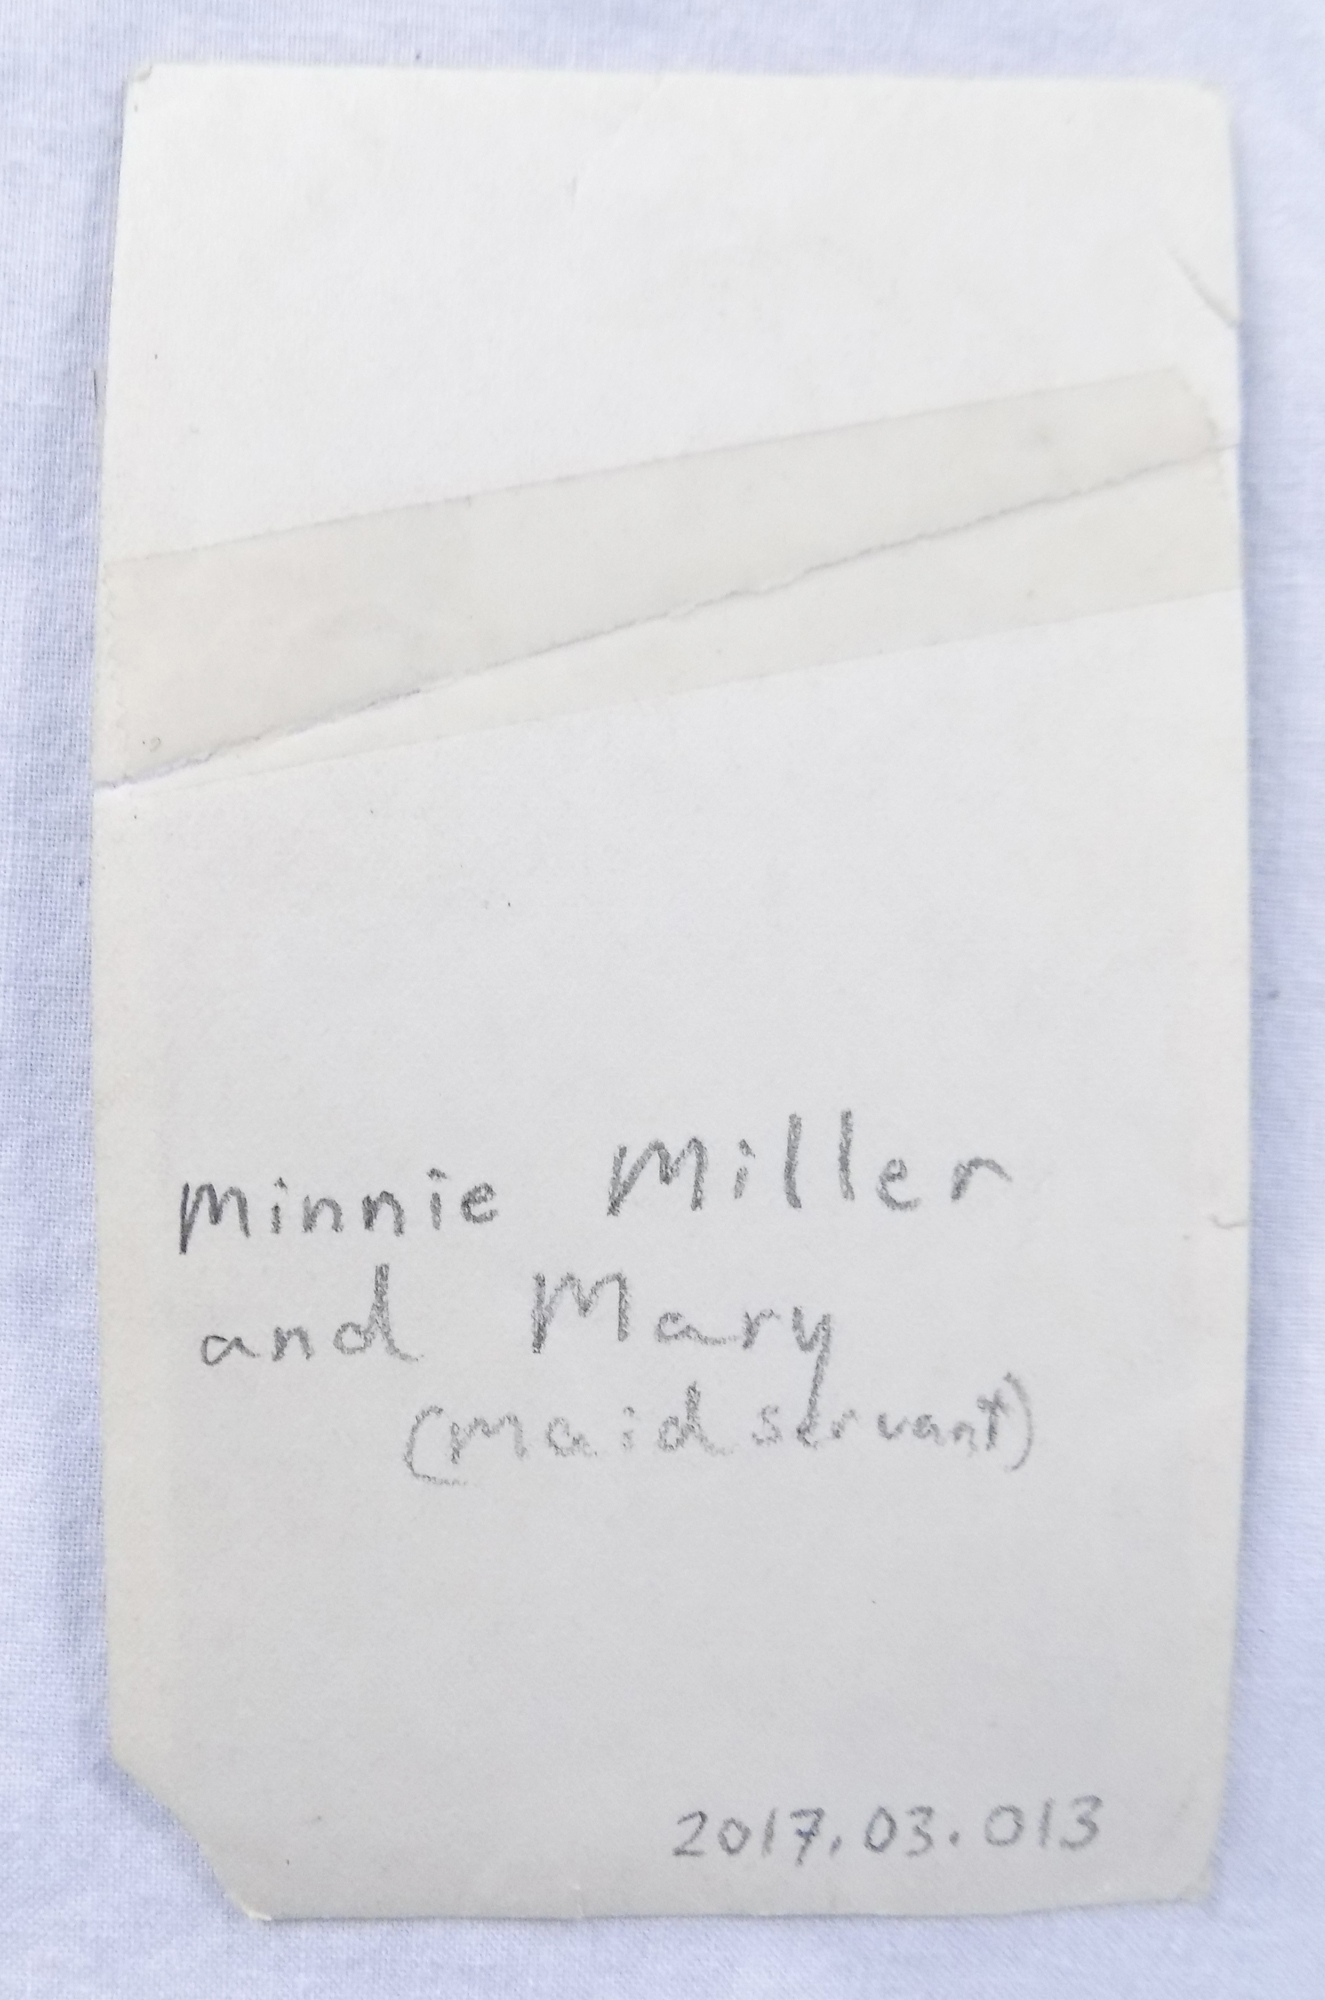 Minnie Miller
and Mary
(Maid servant)
2017.03.013